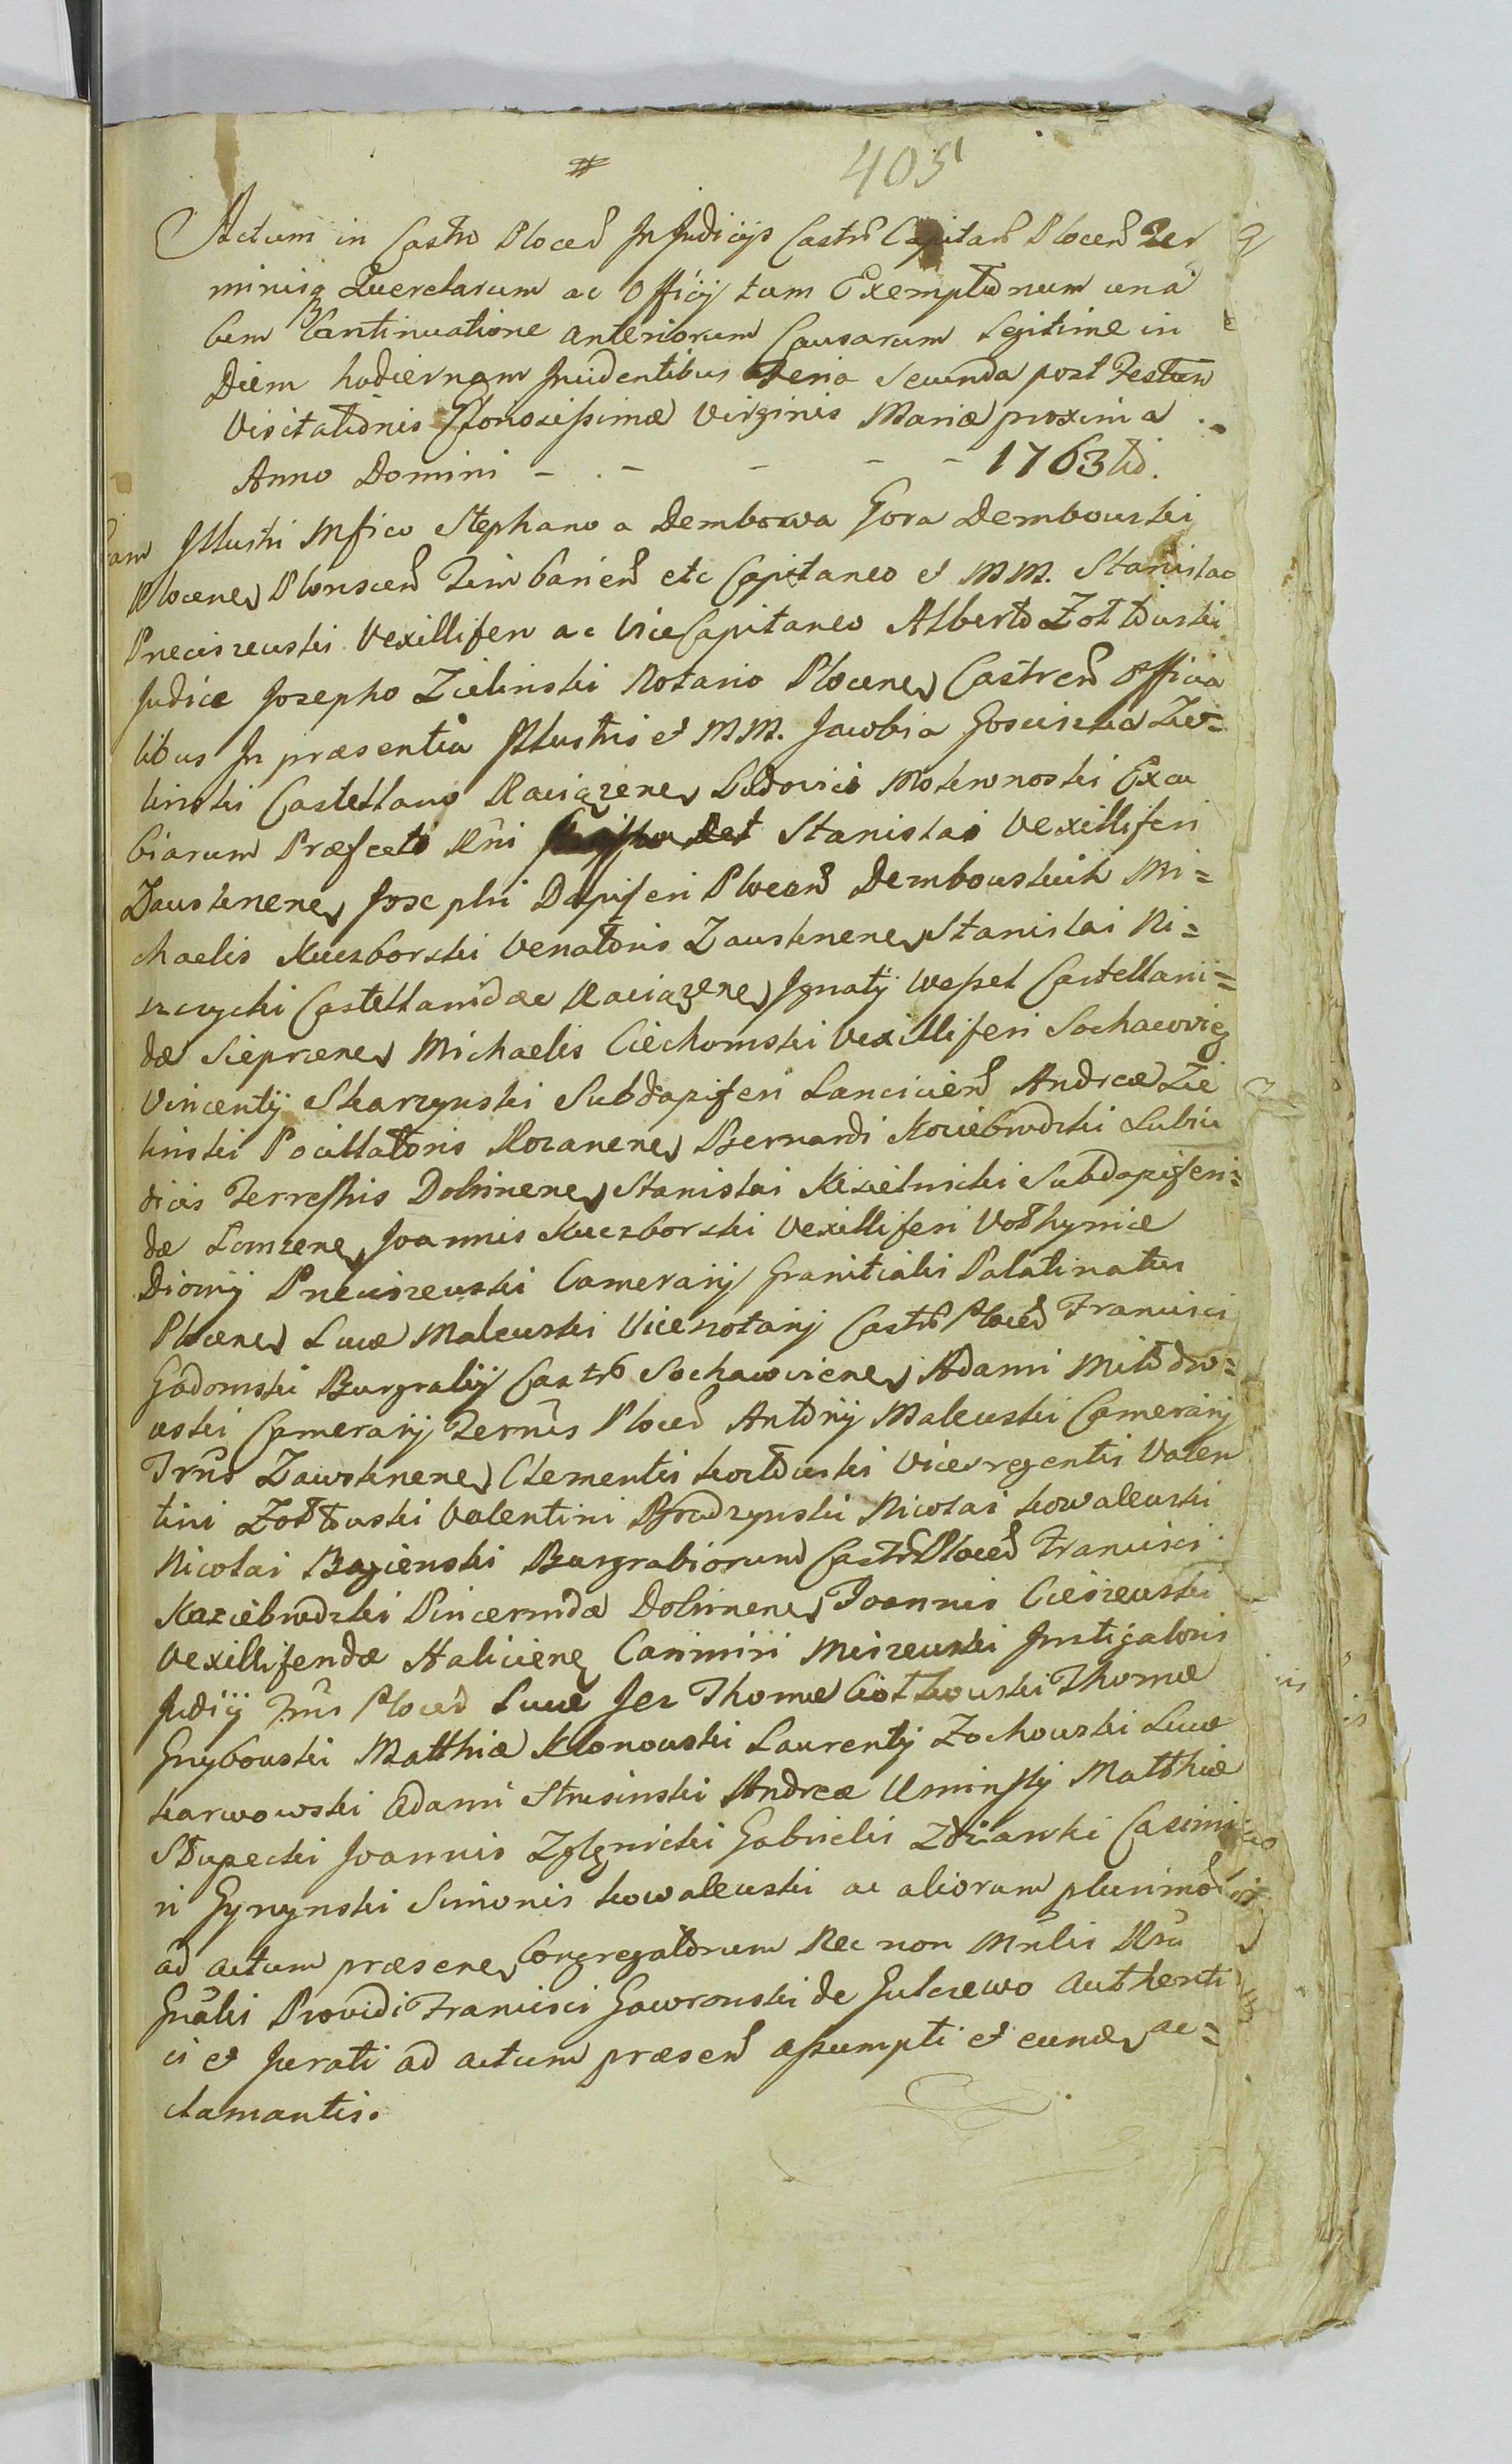 #
405
Actum in Castro Plocen In Judicijs Castr Capitan Plocen Ter
minisq Querelarum ac Officij tum Exemptionum una
Cum Continuatione anteriorum Causarum Legitime in
Diem hodiernam Incidentibus Feria Secunda post Festum
Visitationis Gloriosissimæ Virginis Mariæ proxima
Anno Domini - - - - - 1763tio.
Cam Illustri Mfico Stephano a Dembowa Gora Dembowski
Plocenes Plonscen Zim barien etc Capitaneo et MM. Stanislao
Preciszewski Vexillifero ac ViceCapitaneo Alberto Zołtowski
Judice Josepho Zielinski Notario Plocenes Castren Officia
libus In præsentia Illustris et MM. Jacobi a Gosciszka Zie=
linski Castellano Raciązenes Ludovici Mokronoski Excu
biarum Præfecti Rni Stanislai Vexilliferi
Zawskrnenes Josephi Dapiferi Plocen Dembowskich Mi=
chaelis Kuczborski Venatoris Zawskrnenes Stanislai Ni=
szczycki Castellanidæ Raciązenes Ignatij Wessel Castellani=
dæ Sieprcenes Michaelis Ciechomski Vexilliferi Sochaovieg
Vincentij Skarzynski Subdapiferi Lancicien Andreæ Zie
linski Pocillatoris Rozanenes Bernardi Koziebrodzki Subiu
dicis Terrestris Dobrinenes Stanislai Kisielnicki Subdapiferi=
dæ Lomzenes Joannis Kuczborski Vexilliferi Vołhyniæ
Dionij Preciszewski Camerarij Granitialis Palatinatus
Plocenes Lucæ Malewski Vicenotarij Castr Plocen Francisci
Gadomski Burgrabij Castr Sochaovicenes Adami Miłodro=
wski Camerarij Terris Plocen Antonij Malewski Camerarij
Trris Zawskrnenes Clementis kozłowski Viceregentis Valen
tini Zołtowski Valentini Brodzynski Nicolai kowalewski
Nicolai Bagienski Burgrabiorum Castr Plocen Francisci
Koziebrodzki Pincernidæ Dobrinenes Joannis Cieszewski
Vexilliferidæ Halicieneg Casimiri Miszewski Instigatoris
Judicij Trris Plocen Lucæ Jez Thomæ Ciołkowski Thomæ
Grybowski Matthiæ Klonowski Laurentij Zochowski Lucæ
karwowski Adami Strusinski Andreæ Uminsky Matthiæ
Słupecki Joannis Zglenicki Gabrielis Zdziarski Casimi
ri Gyrynski Simonis kowalewski ac aliorum plurimor
ad actum præsenes Congregatorum Nec non Mrlis Rni
Gnalis Providi Francisci Gawronski de Gulczewo Authenti
ci et Jurati ad actum præsen assumpti et eundes ac=
clamantis.